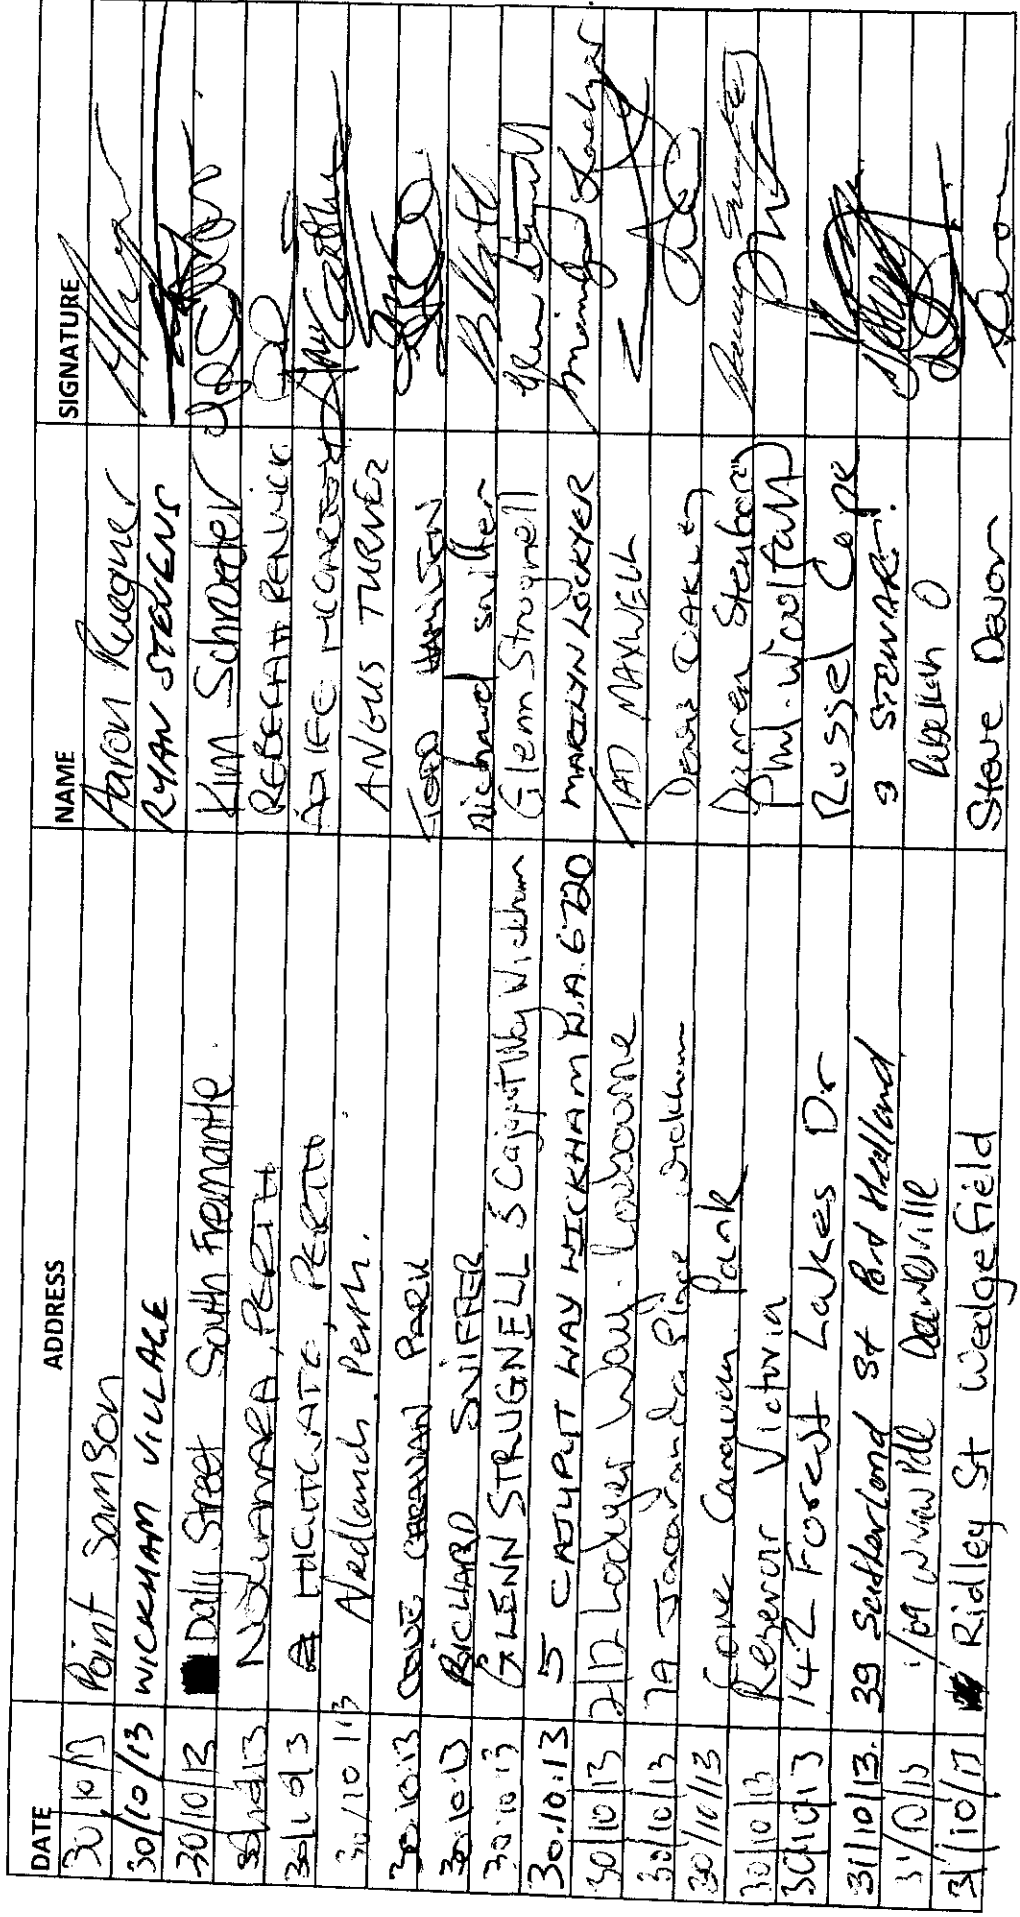 DATE ADDRESS NAME SIGNATURE
30/10/13 Point Samson Aaron Ruegner
30/10/13 WICKHAM VILLAGE RYAN STEVENS
30/10/13 Daly Street South Fremantle. Kim Schroeter
30/10/13 NOLLAMARA, PERTH REBECAH RENWICK
30/10/13 HIGHGATE, PERTH AOIFE MCCARTHY
30/10/13 Nedlands, Perth. ANGUS TURNER
30.10.13 COVE CARAVAN PARK TODD HANSEN
30.10.13 RICHARD SNIFFER Richard sniffer
30.10.13 GLENN STRUGNELL 5 Cajuput Way Wickham Glenn Strugnell
30.10.13 5 CAJUPUT WAY WICKHAM W.A. 6720 MARILYN LOCKYER Marilyn Lockyer
30/10/13 2/12 Lockyer Way. TAD MAXWELL
30/10/13 7A Jacaranda Place Wickham Denis OAKLEY
30/10/13 Cove Caravan Park Darren Stenborg
30/10/13 Reservoir Victoria Phil. Woolfall
30/10/13 142 Forest Lakes Dr Russel Cope
31/10/13. 39 Sutherland St Port Hedland S STEWART.
31/10/13 1/109 Pde Dawesville Rebekah O
31/10/13 Ridley St Wedgefield Steve Devon